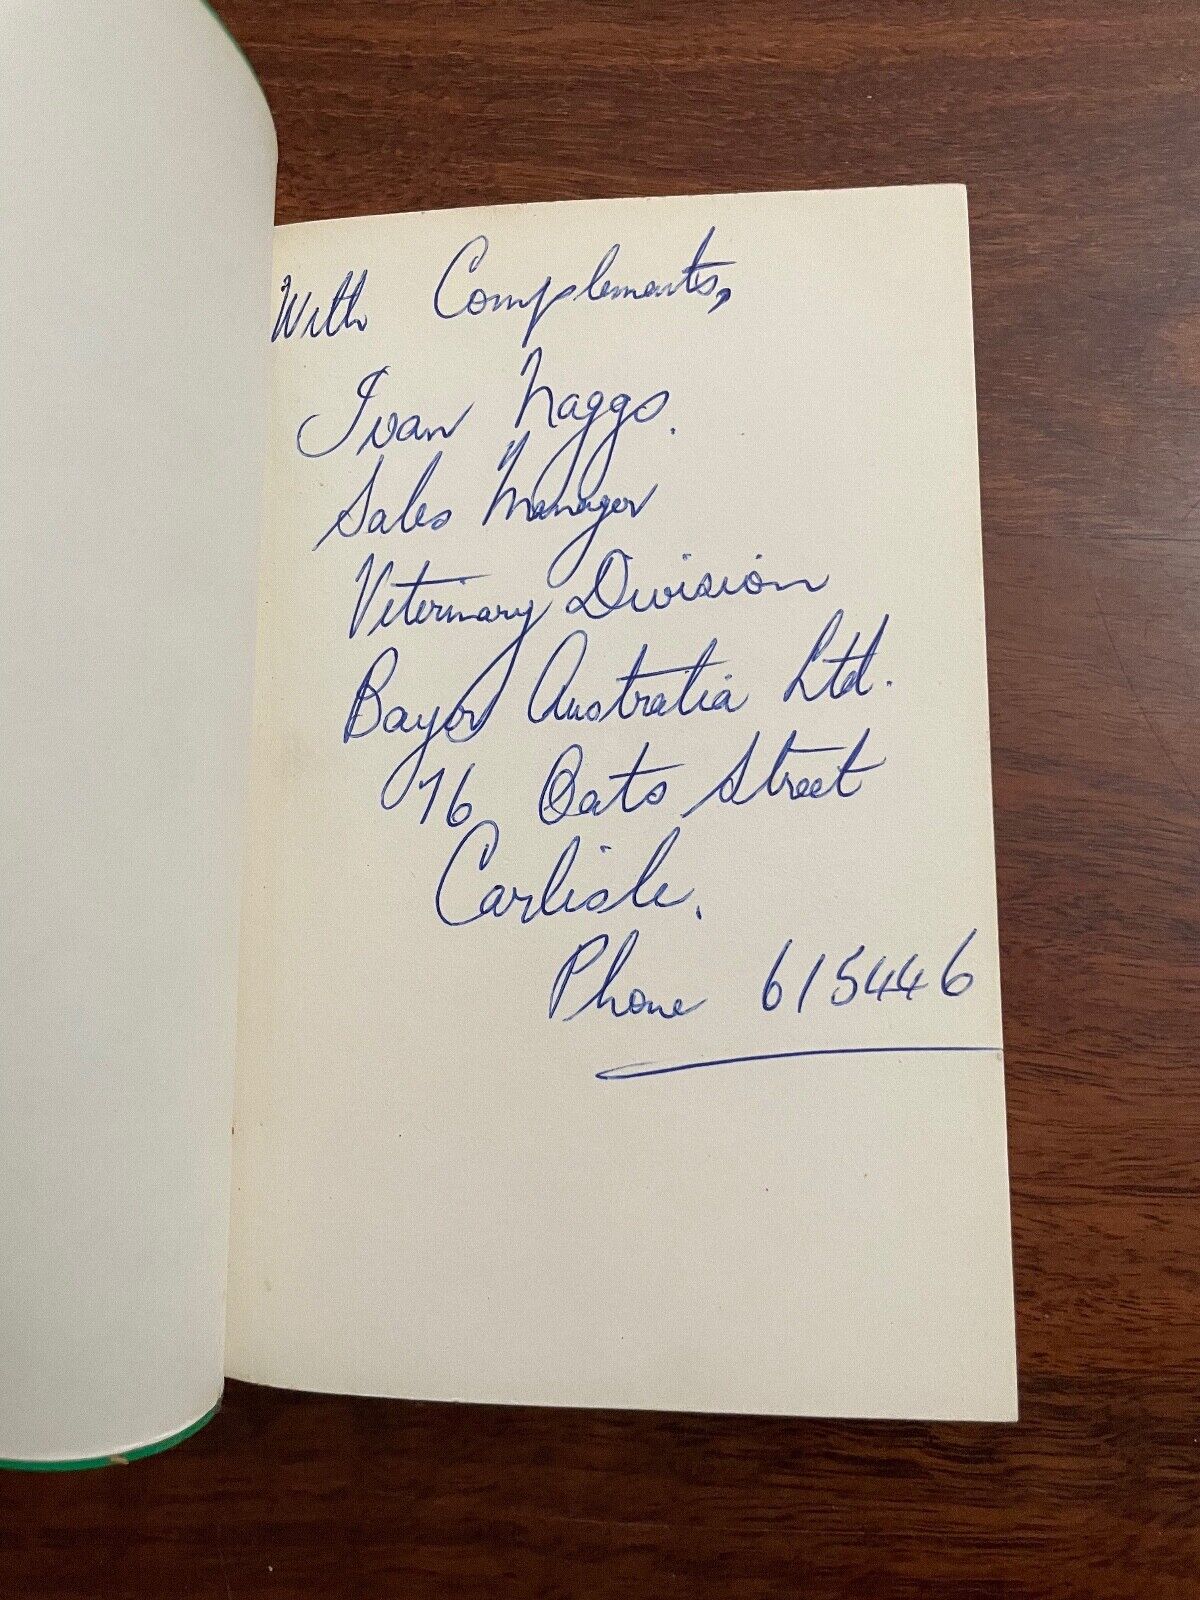 With Complements,
Ivan Naggs.
Sales Manager
Veterinary Division
Bayer Australia Ltd.
76 Oats Street
Carlisle.
Phone 615446